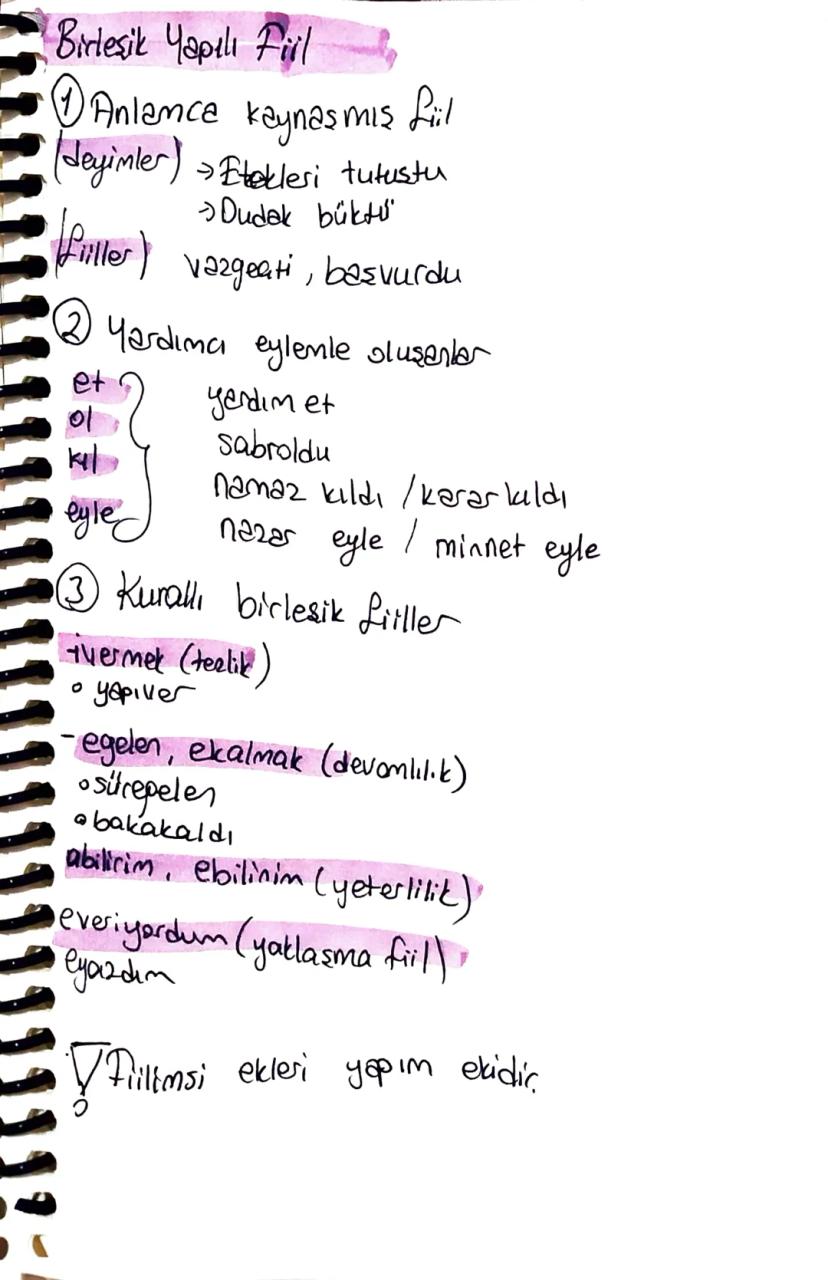 Birleşik Yapılı Fiil
① Anlamca kaynaşmış fiil
(deyimler) → Etekleri tutuştu
→ Dudak büktü
(fiiller) vazgeçti, başvurdu
② Yardımcı eylemle oluşanlar
et yardım et
ol sabroldu
kıl namaz kıldı / karar kıldı
eyle nazar eyle / minnet eyle
③ Kurallı birleşik fiiller
-ivermek (tezlik)
• yapıver
- egelen, ekalmak (devamlılık)
• süregelen
• bakakaldı
abilirim, ebilirim (yeterlilik)
everiyordum (yaklaşma fiil)
eyazdım
Fiilimsi ekleri yapım ekidir.